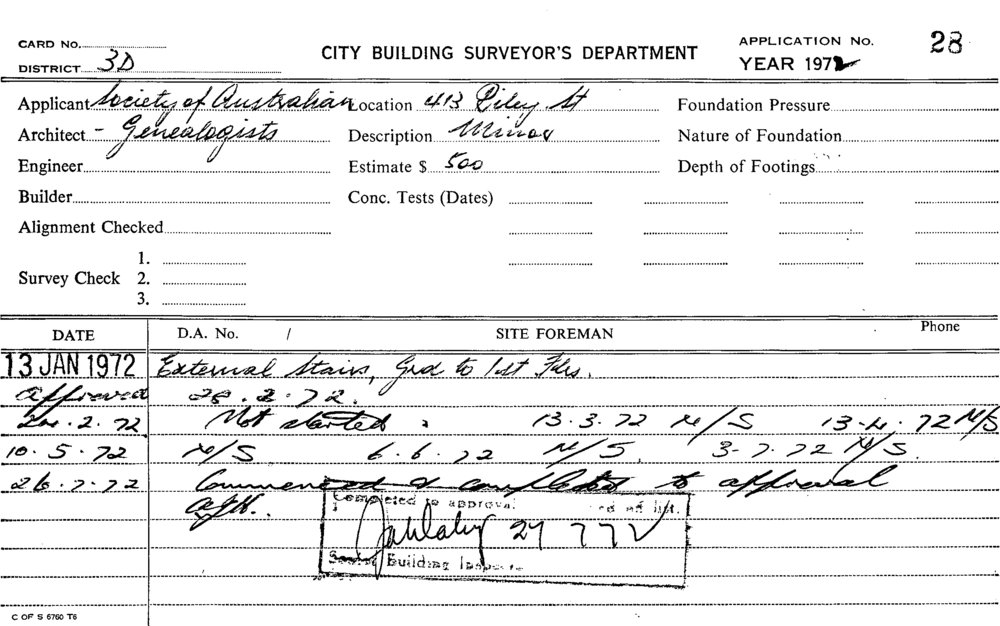 CARD No.
DISTRICT 3D
CITY BUILDING SURVEYOR'S DEPARTMENT
APPLICATION No. 28
YEAR 1972
Applicant Society of Australian
Location 413 Riley St
Foundation Pressure
Architect - Genealogists
Description Minor
Nature of Foundation
Engineer
Estimate $ 500
Depth of Footings
Builder
Conc. Tests (Dates)
Alignment Checked
Survey Check 1.
2.
3.
DATE D.A. No. / SITE FOREMAN Phone
13 JAN 1972 External Stairs, Grd to 1st Flrs.
Approved 28.2.72.
.2.72 Not started 13.3.72 N/S 13.4.72 N/S
10.5.72 N/S 6.6.72 N/S. 3.7.72 N/S.
26.7.72 Commenced & completed to approval
Completed to approval
27 7 72
Senior Building
C OF S 6760 T6